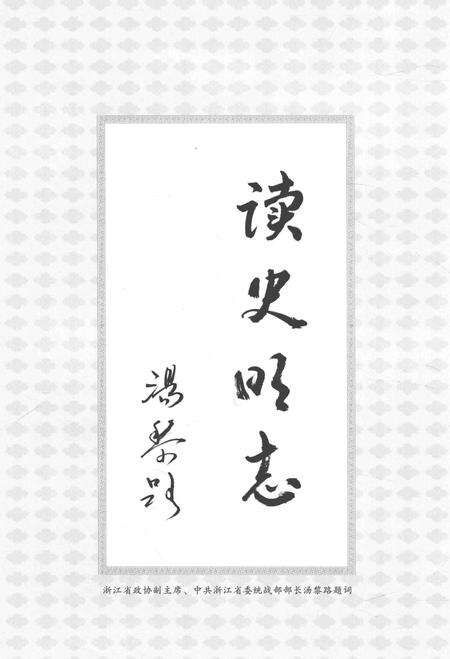 读史明志
汤黎路
浙江省政协副主席、中共浙江省委统战部部长汤黎路题词